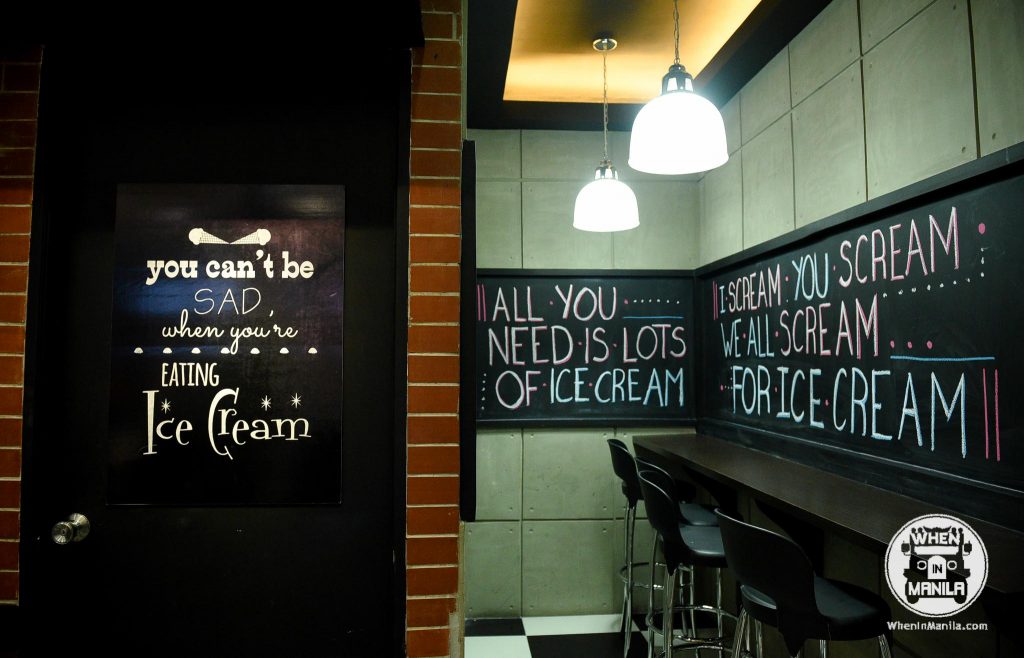 you can't be
SAD
when you're
EATING
Ice Cream
ALL YOU
NEED IS LOTS
OF ICE CREAM
I SCREAM YOU SCREAM
WE ALL SCREAM
FOR ICE CREAM
WHEN
IN
MANILA
WhenInManila.com